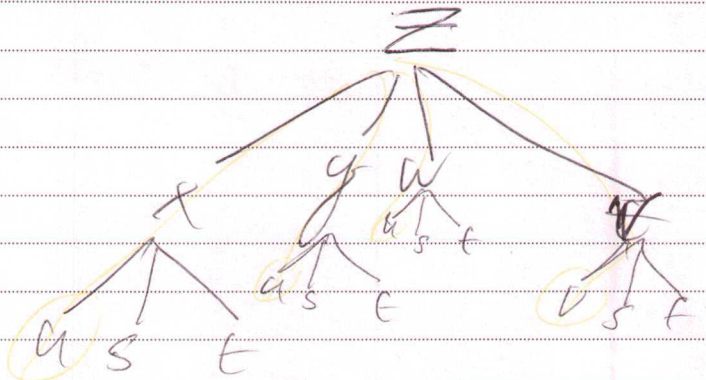 Z
x y w
u s t
u s t
u s t
s t